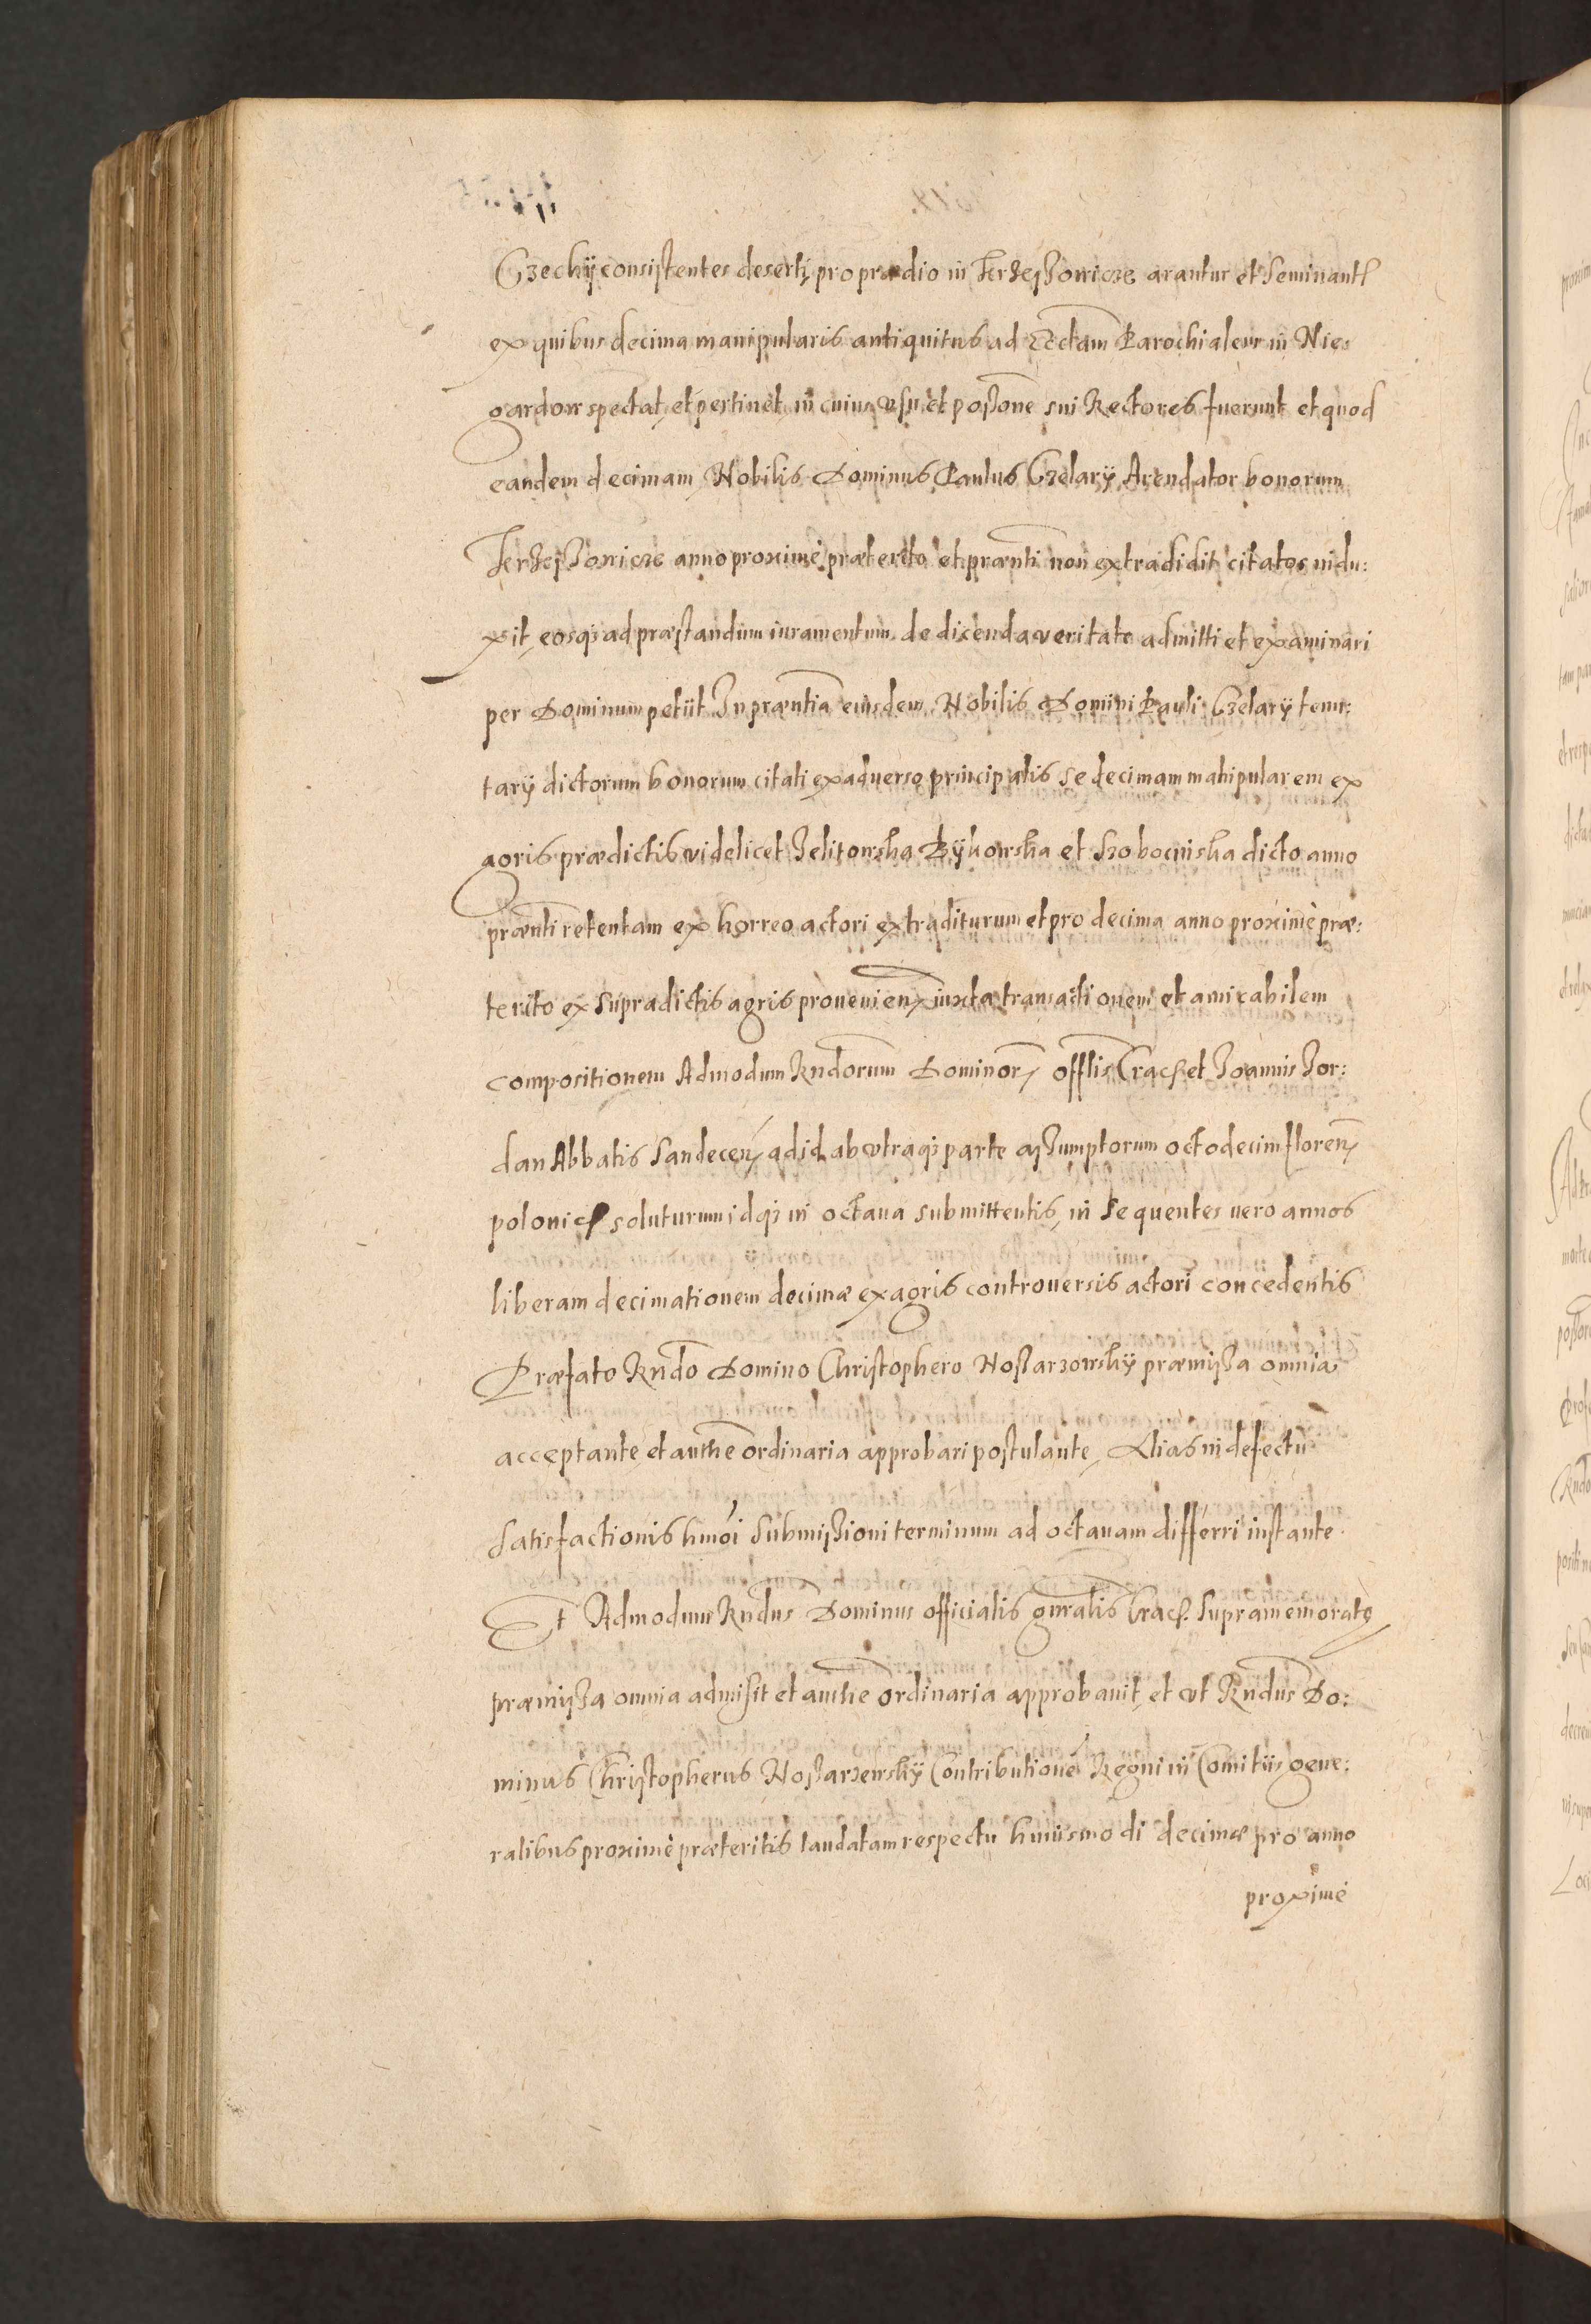 Czechÿ consistentes deserti, pro prædio in Jerzeijßowicze arantur et seminant
ex quibus decima manipularis antiquitus ad Ecctam Parochialem in Nie:
gardow spectat, et pertinet, in cuius usu et poßone sui Rectores fuerunt et quod
eandem decimam Nobilis Dominus Paulus Czelarÿ Arendator bonorum
anno proximè præterito et prænti non extradidit citatos indu:
xit, eosq; ad præstandum iuramentum de dicenda veritate admitti et examinari
per Dominum petiit In præntia eiusdem Nobilis Domini Pauli Czelarÿ tenu:
tarÿ dictorum bonorum citati ex adverso principalis se decimam manipularem ex
agris prædictis videlicet Jelitowska Bÿkowska et dicto anno
prænti retentam ex horreo actori extraditurum et pro decima anno proximè præ:
terito ex supradictis agris provenien iuxta transactionem et amicabilem
compositionem Admodum Rndorum Dominor offlis Crac et Joannis Jor:
dan Abbatis Sandecen ad id ab utraq; parte aßumptorum octodecim floren
polonic soluturum idq; in octava submittentis, in sequentes vero annos
liberam decimationem decimæ ex agris controversis actori concedentis
Præfato Rndo Domino Christophero Noßarzowskÿ præmißa omnia
acceptante, et authe ordinaria approbari postulante, Alias in defectu
satisfactionis hmoi submißioni terminum ad octavam differri instante
Et Admodum Rndus Dominus officialis gnralis Crac. supramemorats
præmißa omnia admisit et authe ordinaria approbavit, et ut Rndus Do:
minus Christopherus Noßarzewskÿ Contributione Regni in Comitiis gene:
ralibus proximè præteritis laudatam respectu huiusmodi decimæ pro anno
proximè